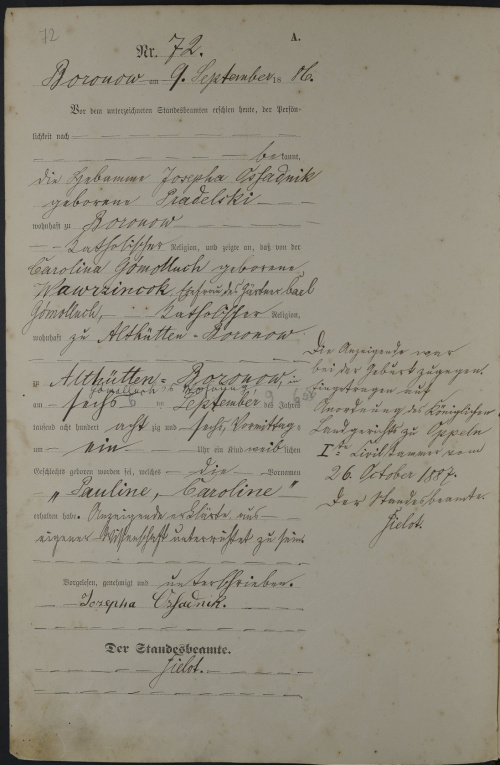 72
A.
Nr. 72.
Boronow am 9. September 18 86.
Vor dem unterzeichneten Standesbeamten erschien heute, der Persön-
lichkeit nach
bekannt,
die Hebamme Josepha Osadnik
geborene Pradelski
wohnhaft zu Boronow
Katholischer Religion, und zeigte an, daß von der
Carolina Gomolluch geborene
Wawrzincok Ehefrau des Gärtners Carl
Gomolluch, Katholischer Religion,
wohnhaft zu Althütten-Boronow
zu Althütten-Boronow,
am sechs September des Jahres
tausend acht hundert achtzig und sechs, Vormittags
um ein Uhr ein Kind weiblichen
Geschlechts geboren worden sei, welches die Vornamen
„Pauline, Caroline"
erhalten habe. Anzeigende erklärte aus
eigener Wissenschaft unterrichtet zu sein
Vorgelesen, genehmigt und unterschrieben.
Josepha
Der Standesbeamte.
Zielot.
Die Anzeigende war
bei der Geburt zugegen.
Eingetragen auf
Anordnung des Königlichen
Landgerichts zu Oppeln
Iste Civilkammer vom
26. October 1887.
Der Standesbeamte
Zielot.